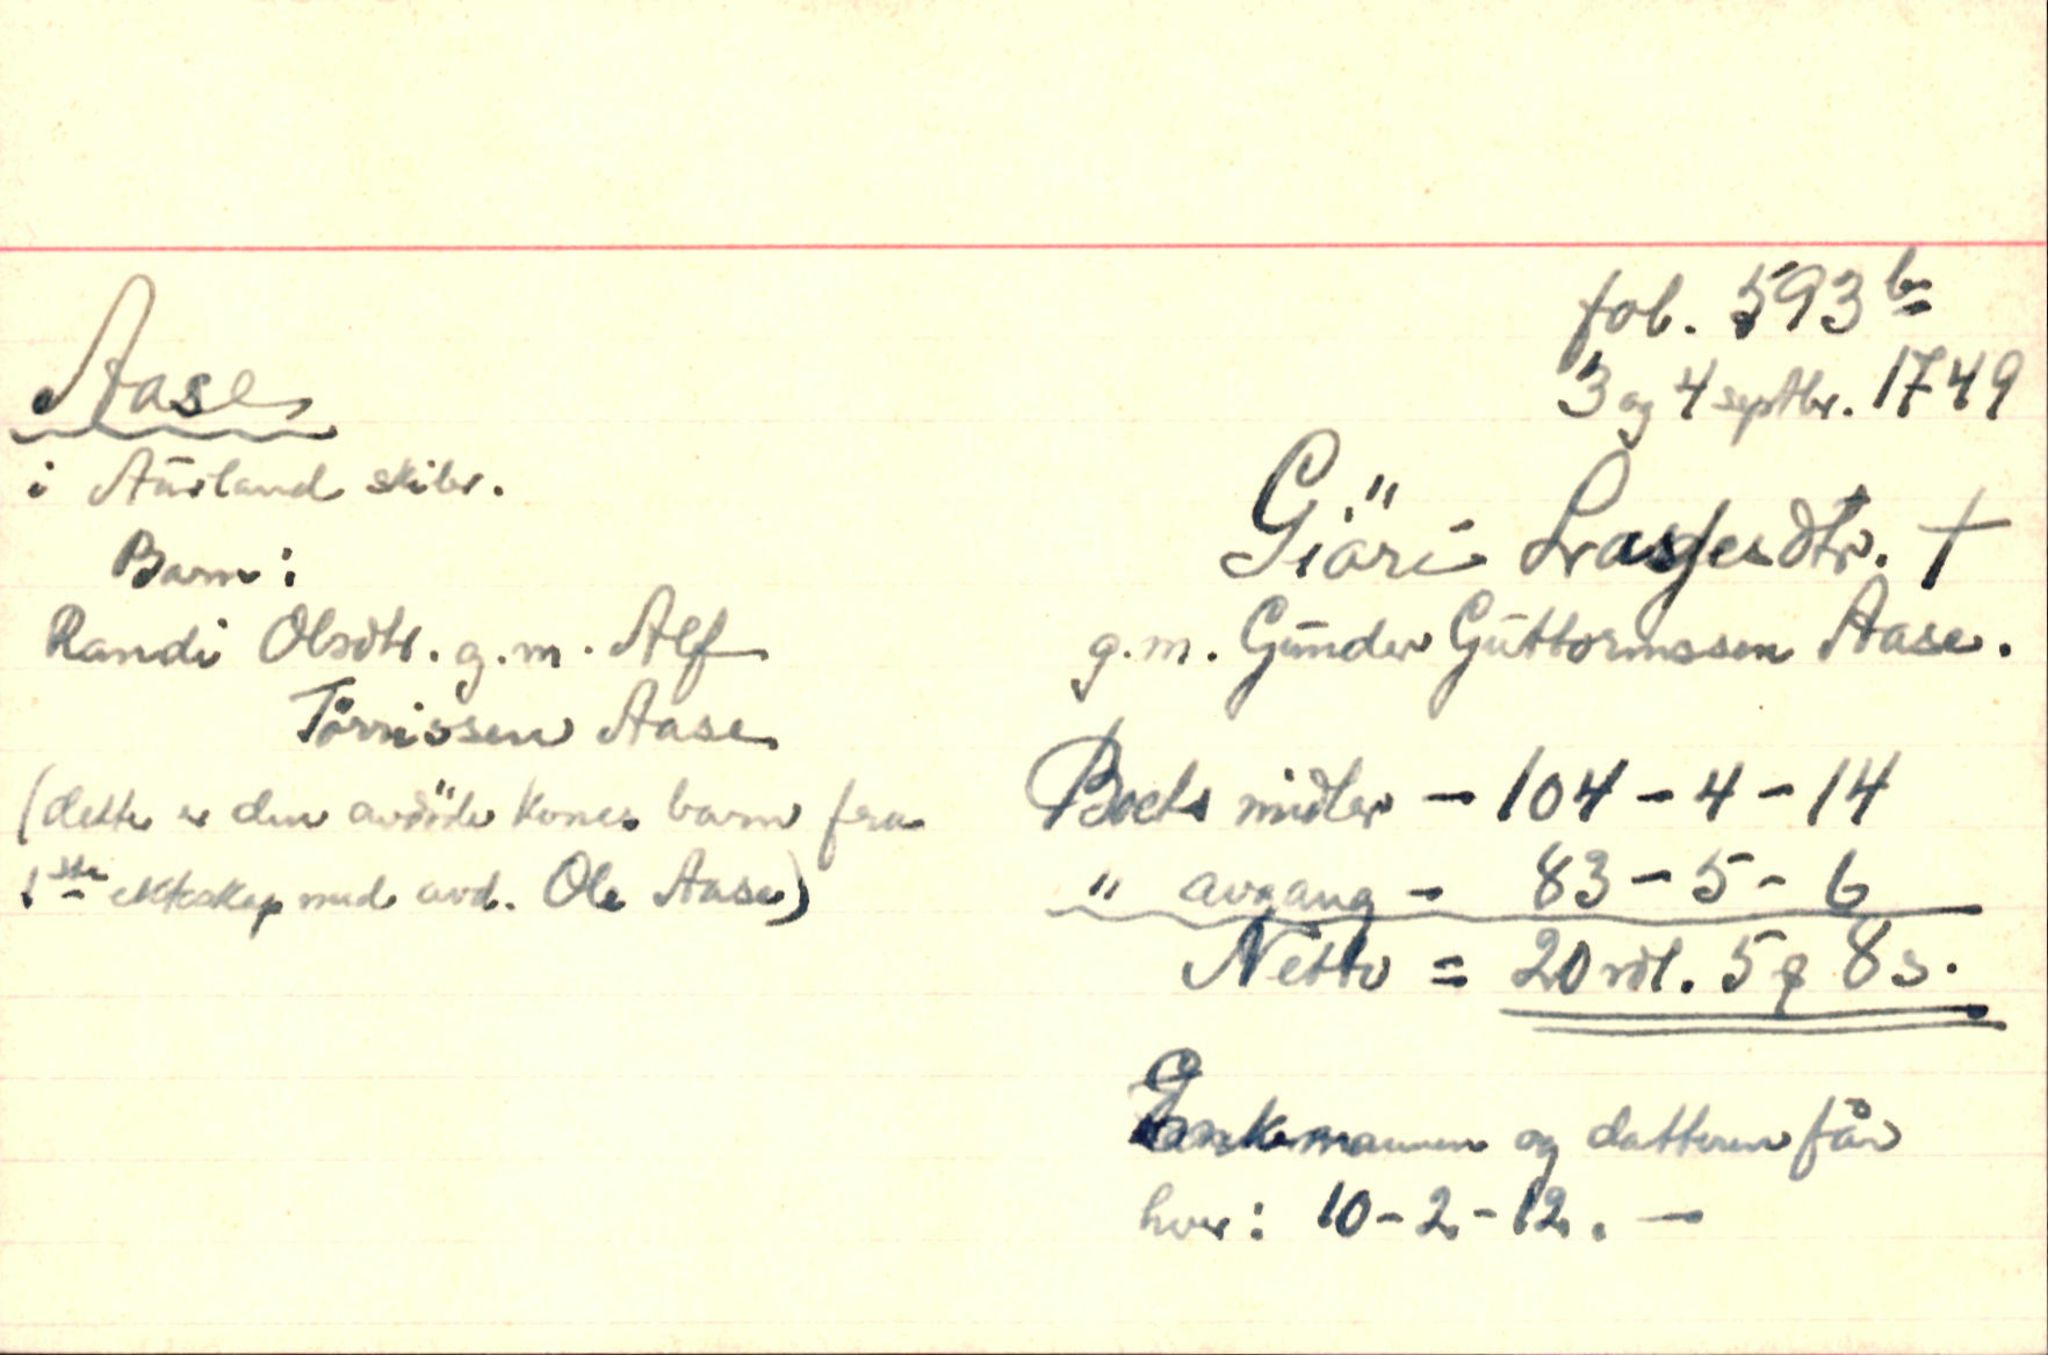 Aase
i Aurland skibr.
Barn:
Randi Olsdtr. g.m. Alf
Tørrissen Aase
(dette er den avdöde kones barn fra
1ste ekteskap med avd. Ole Aase)
fol. 593b
3 og 4 septbr. 1749
Giöri Lassesdtr. †
g.m. Gunder Guttormssen Aase.
Boets midler – 104 – 4 – 14
" avgang – 83 – 5 – 6
Netto = 20 rdl. 5 q 8 s.
Enkemannen og datteren får
hver: 10 – 2 – 12. –